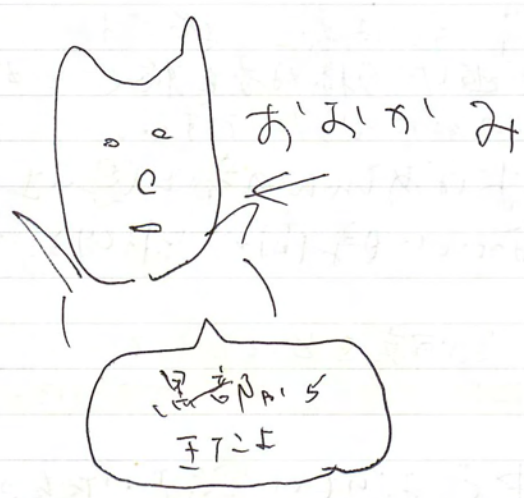 おおかみ
黒部から
きたよ